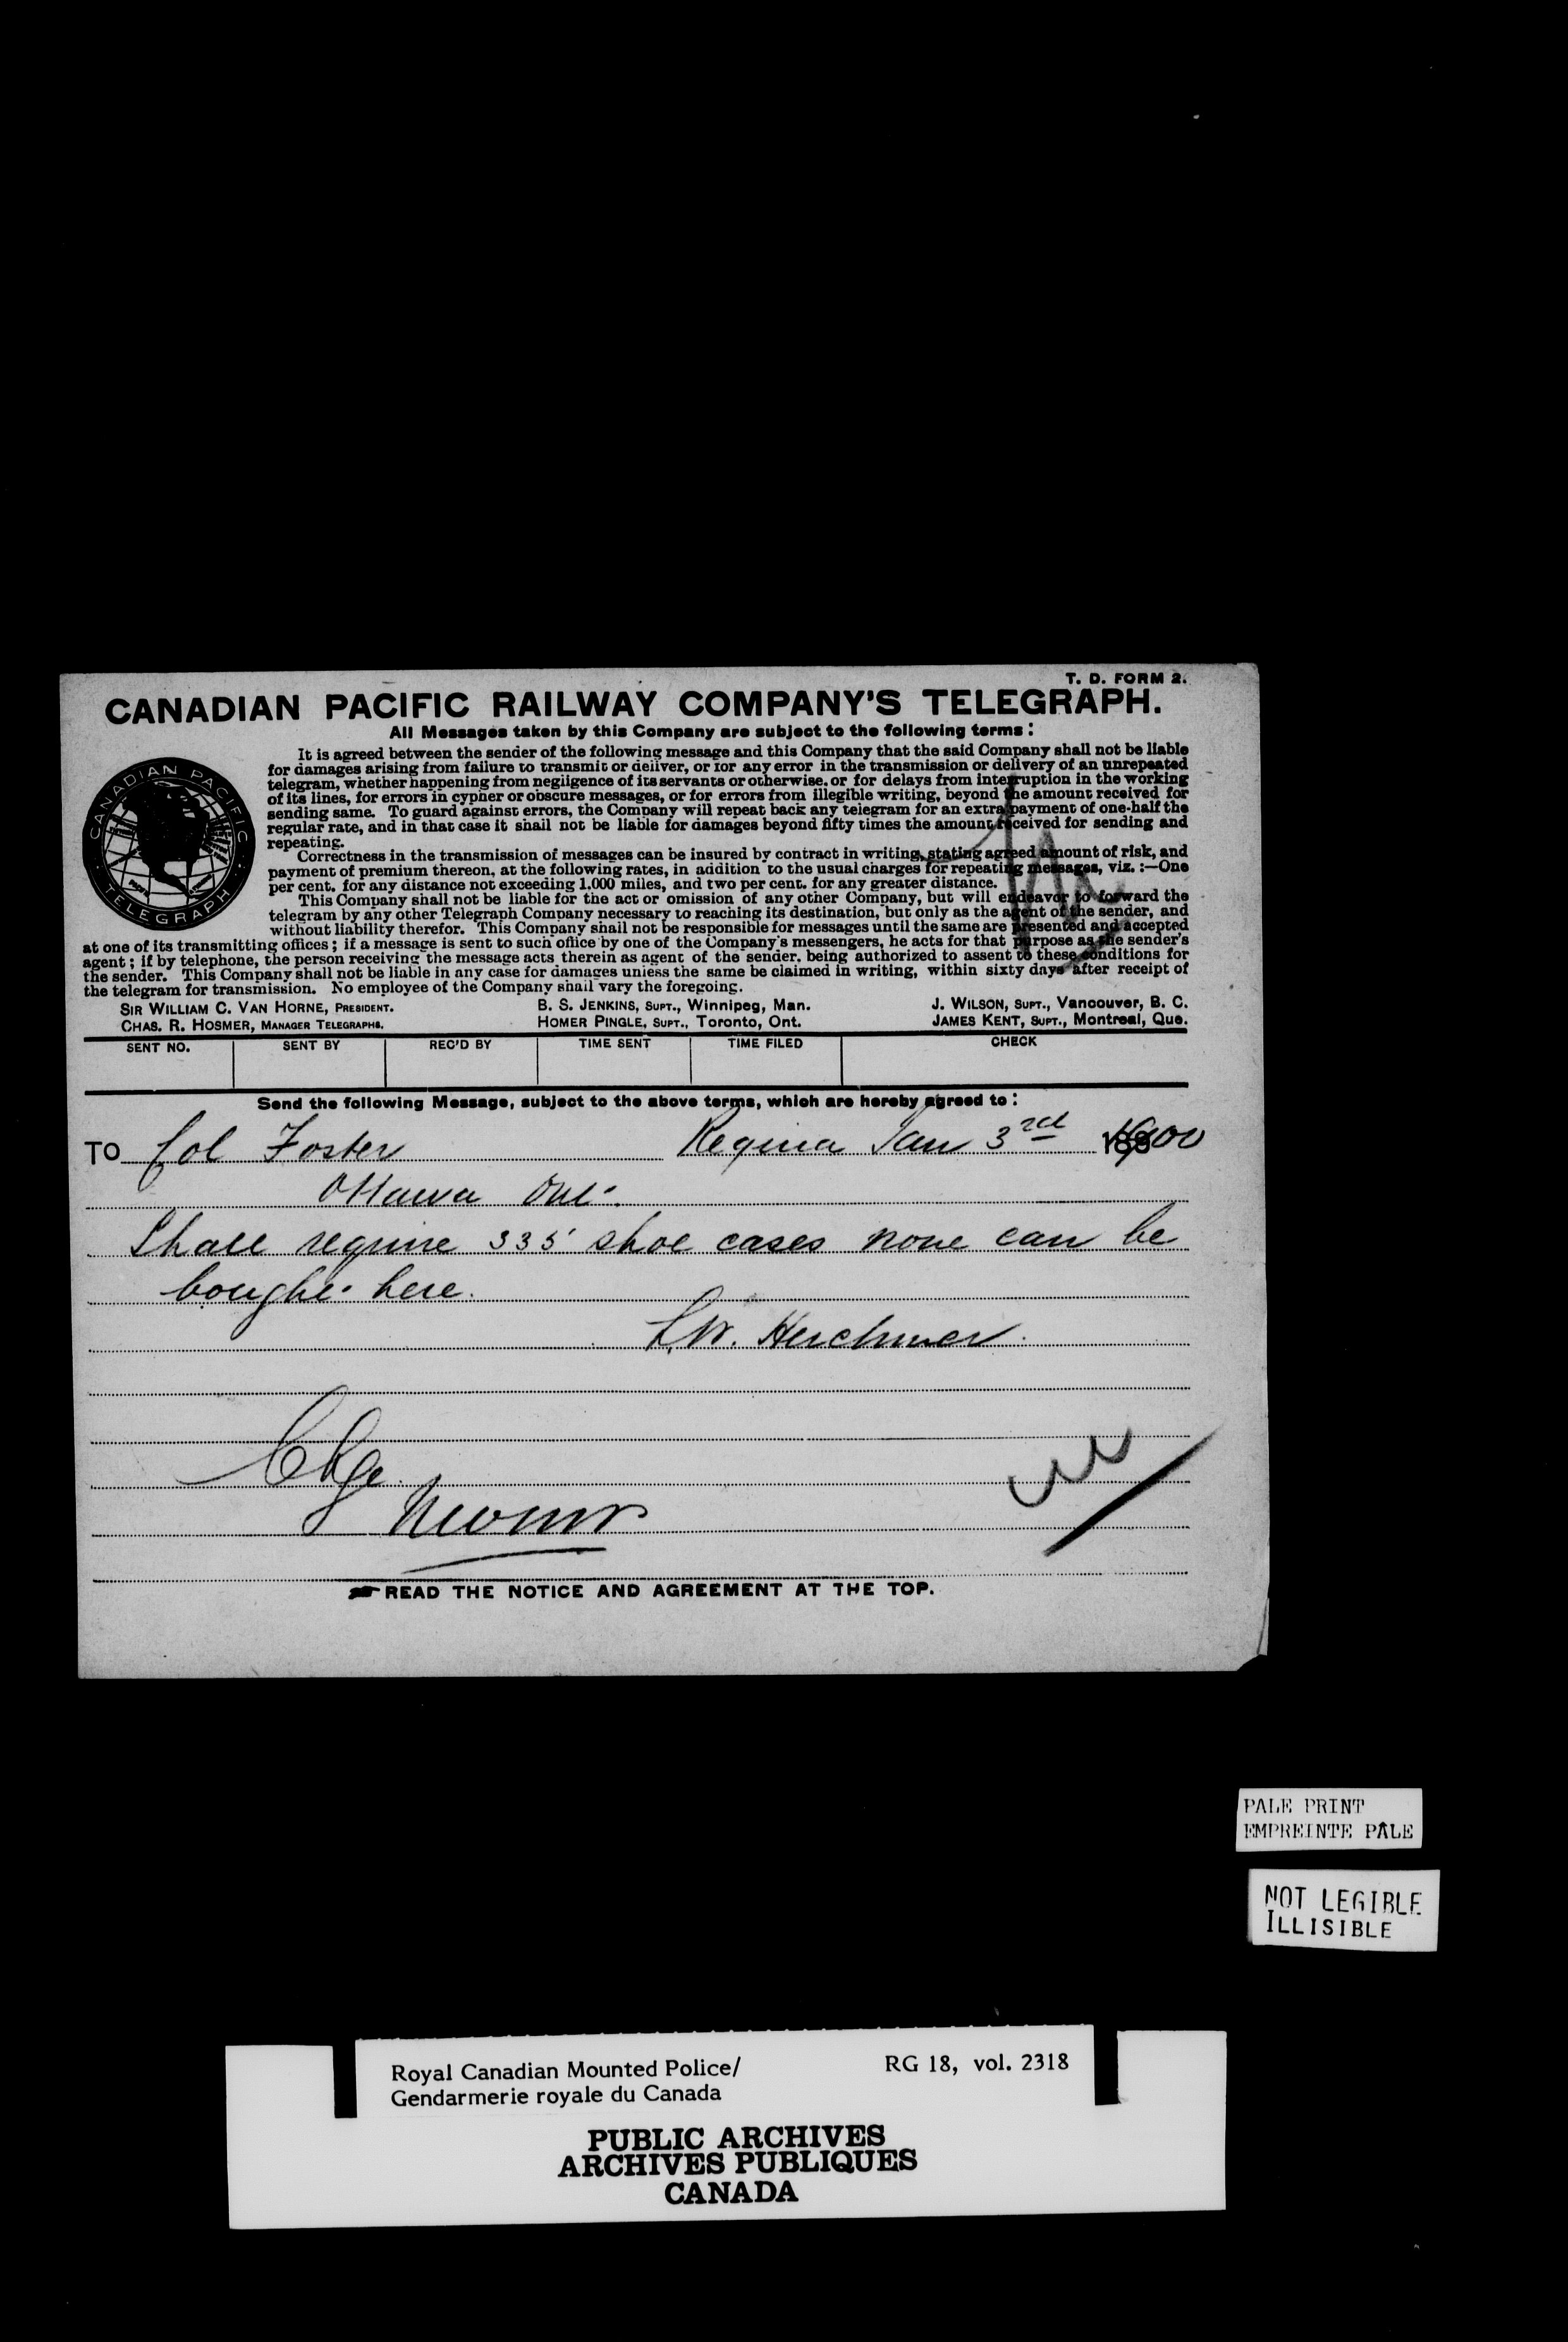 T. D. FORM 2.
CANADIAN PACIFIC RAILWAY COMPANY'S TELEGRAPH.
All Messages taken by this Company are subject to the following terms:
It is agreed between the sender of the following message and this Company that the said Company shall not be liable
for damages arising from failure to transmit or deliver, or for any error in the transmission or delivery of an unrepeated
telegram, whether happening from negligence of its servants or otherwise, or for delays from interruption in the working
of its lines, for errors in cypher or obscure messages, or for errors from illegible writing, beyond the amount received for
sending same. To guard against errors, the Company will repeat back any telegram for an extra payment of one-half the
regular rate, and in that case it shall not be liable for damages beyond fifty times the amount received for sending and
repeating.
Correctness in the transmission of messages can be insured by contract in writing, stating agreed amount of risk, and
payment of premium thereon, at the following rates, in addition to the usual charges for repeating messages, viz. :—One
per cent. for any distance not exceeding 1.000 miles, and two per cent. for any greater distance.
This Company shall not be liable for the act or omission of any other Company, but will endeavor to forward the
telegram by any other Telegraph Company necessary to reaching its destination, but only as the agent of the sender, and
without liability therefor. This Company shall not be responsible for messages until the same are presented and accepted
at one of its transmitting offices ; if a message is sent to such office by one of the Company's messengers, he acts for that purpose as the sender's
agent ; if by telephone, the person receiving the message acts therein as agent of the sender, being authorized to assent to these conditions for
the sender. This Company shall not be liable in any case for damages unless the same be claimed in writing, within sixty days after receipt of
the telegram for transmission. No employee of the Company shall vary the foregoing.
CANADIAN PACIFIC
TELEGRAPH
SIR WILLIAM C. VAN HORNE, PRESIDENT. B. S. JENKINS, SUPT., Winnipeg, Man. J. WILSON, SUPT., Vancouver, B. C.
CHAS. R. HOSMER, MANAGER TELEGRAPHS. HOMER PINGLE, SUPT., Toronto, Ont. JAMES KENT, SUPT., Montreal, Que.
SENT NO. SENT BY REC'D BY TIME SENT TIME FILED CHECK
Send the following Message, subject to the above terms, which are hereby agreed to:
TO Col Foster Regina Jan 3rd 1900
Ottawa Ont.
Shall require 335 shoe cases none can be
bought here.
L.W. Herchmer.
Chge
READ THE NOTICE AND AGREEMENT AT THE TOP.
PALE PRINT
EMPREINTE PÂLE
NOT LEGIBLE
ILLISIBLE
Royal Canadian Mounted Police/ RG 18, vol. 2318
Gendarmerie royale du Canada
PUBLIC ARCHIVES
ARCHIVES PUBLIQUES
CANADA